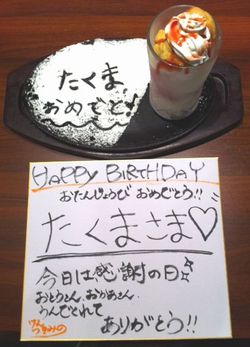 たくま
おめでと♪
HAPPY BIRTHDAY
おたんじょうび おめでとう!!
たくまさま♡
今日は感謝の日
おとうさん、おかあさん、
うんでくれて
ありがとう!!